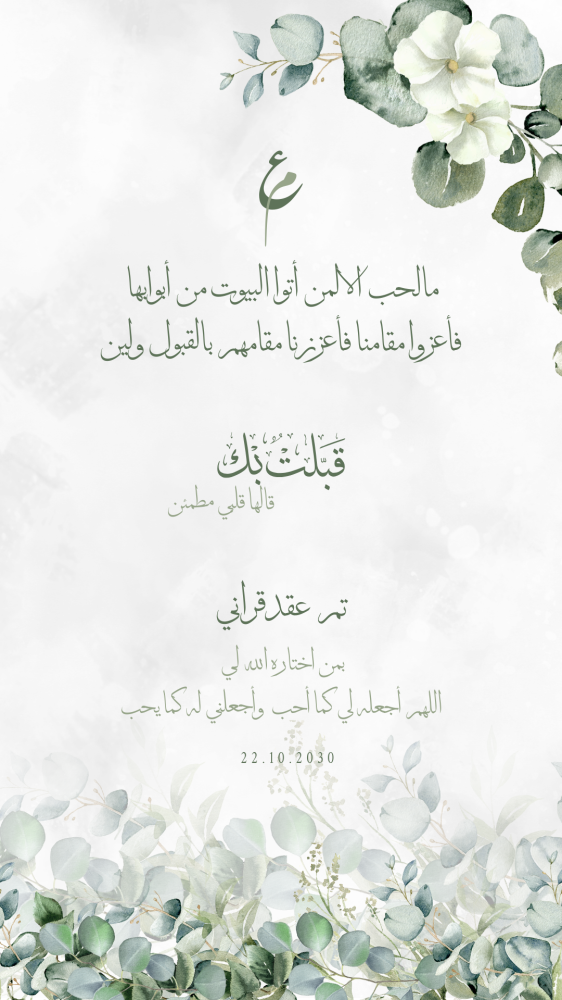 ع م
مالحب الالمن أتوا البيوت من أبوابها
فأعزوا مقامنا فأعززنا مقامهم بالقبول ولين
قَبّلتْ بْك
قالها قلبي مطمئن
تم عقد قراني
بمن اختاره الله لي
اللهم أجعله لي كما أحب وأجعلني له كما يحب
22.10.2030